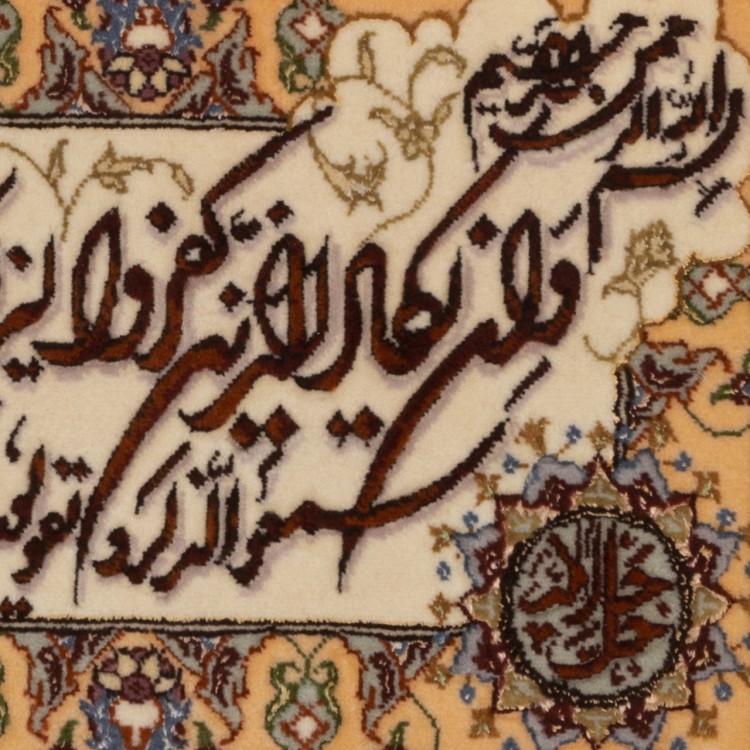 بسم الله الرحمن الرحیم
وان یکاد الذین کفروا لیز
لما سمعوا الذکر و یقولو